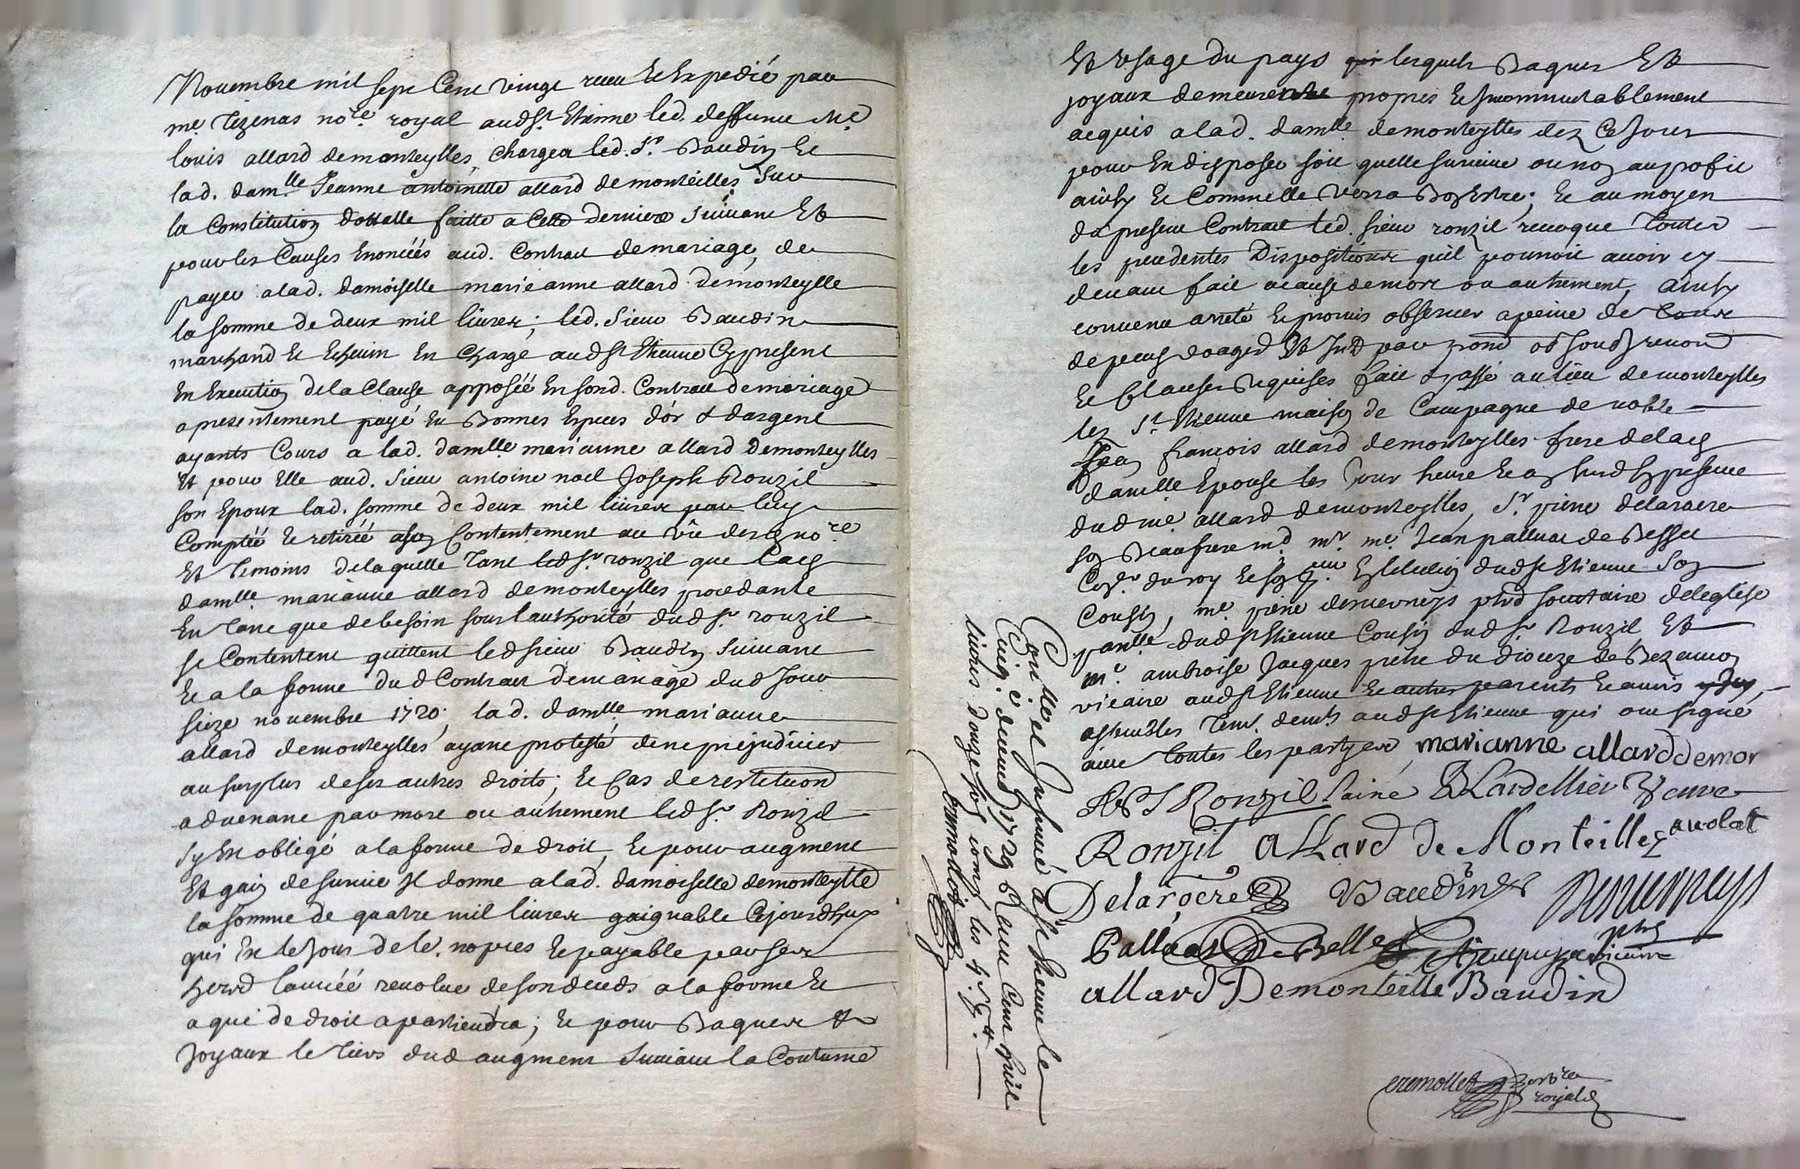 Novembre mil sept Cent vingt receu et Expedié par
me. Tezenas nore. royal aud st. Etienne led. deffunt Me
louis allard demonteylles, chargea led. Sr. Baudin Et
lad. damlle Jeanne antoinette allard demonteilles Sur
la Constitution dottelle faitte a cette derniere suivant Et
pour les Causes Enoncéés aud. Contrat demariage, de
payer a lad. damoiselle marie anne allard Demonteylle
la somme de deux mil livres; led. Sieur Baudin
marchand et Echevin En charge aud st Etienne Cy present
En Execution de la Clause apposéé En sond. Contrat demariage
a presentement payé En Bonnes Especes dór & dargent
ayants Cours a lad. damlle marianne allard Demonteylles
Et pour Elle aud. Sieur antoine noel Joseph Ronzil
son Epoux lad. somme de deux mil livres par luy
Comptéé et retiréé a son Contentement au vû desd. nore
Et Temoins de laquelle Tant led sr. ronzil que lad.
damlle. marianne allard demonteylles procedante
En Tant que de besoin sous l'authorité dud sr. ronzil
se Contentent quittent led sieur Baudin suivant
Et a la forme dud Contrat Demariage dud Jour
seize novembre 1720. lad. damlle. marianne
allard demonteylles ayant protesté de ne prejudicier
au surplus de ses autres droits; Et Cas de restitution
advenant par mort ou autrement led sr. Ronzil
sy En obligé a la forme de droit, Et pour augment
Et gain de survie Il donne a lad. damoiselle demonteylle
la somme de quatre mil livres gaignable Cejourdhuy
qui En le Jour de le. nopces Et payable par ses
heritrs l'annéé revolue de son deceds a la forme Et
a qui de droit apartiendra; Et pour Bagues &
Joyaux le Tiers dud augment suivant la Coutume
Et Usage du pays lesquels Bagues Et
joyaux demeureront propres Et Incommutablement
acquis a lad. damlle demonteylles dez Ce Jour
pour En disposer soit quelle survive ou non au profit
ainsy Et Comme Elle verra Bon Estre; Et au moyen
du present Contrat led. sieur ronzil revoque Toutes
les precedentes Dispositions quil pourroit avoir cy
devant fait a cause de mort ou autrement, ainsy
convenu arreté Et promis observer a peine de Tous
depens domages Et
Et Clauses Requises fait & passé au lieu demonteylles
lez St. Etienne maison de Campagne de noble
Jean françois allard demonteylles frere de lad.
damlle Epouse les Jour heure Et an susd. En presence
dud me. allard demonteylles, Sr. pierre delarocre
son Beaufrere md. mr. me. Jean palluat de Besset
Coner. du roy Et son En lElection dud st Etienne Son
Cousin, me. pierre desverneys pbre societaire de leglise
parolle. dud st Etienne Cousin dud sr. Ronzil, Et
mr. ambroise Jacques pretre du dioceze de Bezancon
vicaire aud st Etienne Et autres parents Et amis
assembles Tem. demts. aud st Etienne qui ont signé
avec Toutes les partyes, marianne allard demon
Ronzil laine B Lardellier Veuve
Ronzil Allard de Monteillez avolat
Delarocre Baudin Desverneys
pbre
Palluat De Besset Jacques vicaire
allard Demonteille Baudin
eremollet notre
royal
Con.lle et Insinué a st. Etienne le
Cinq.e decemb. 1729 Reccu cent huit
livres douze sols compris les 4. s. p. ll.
eremollet